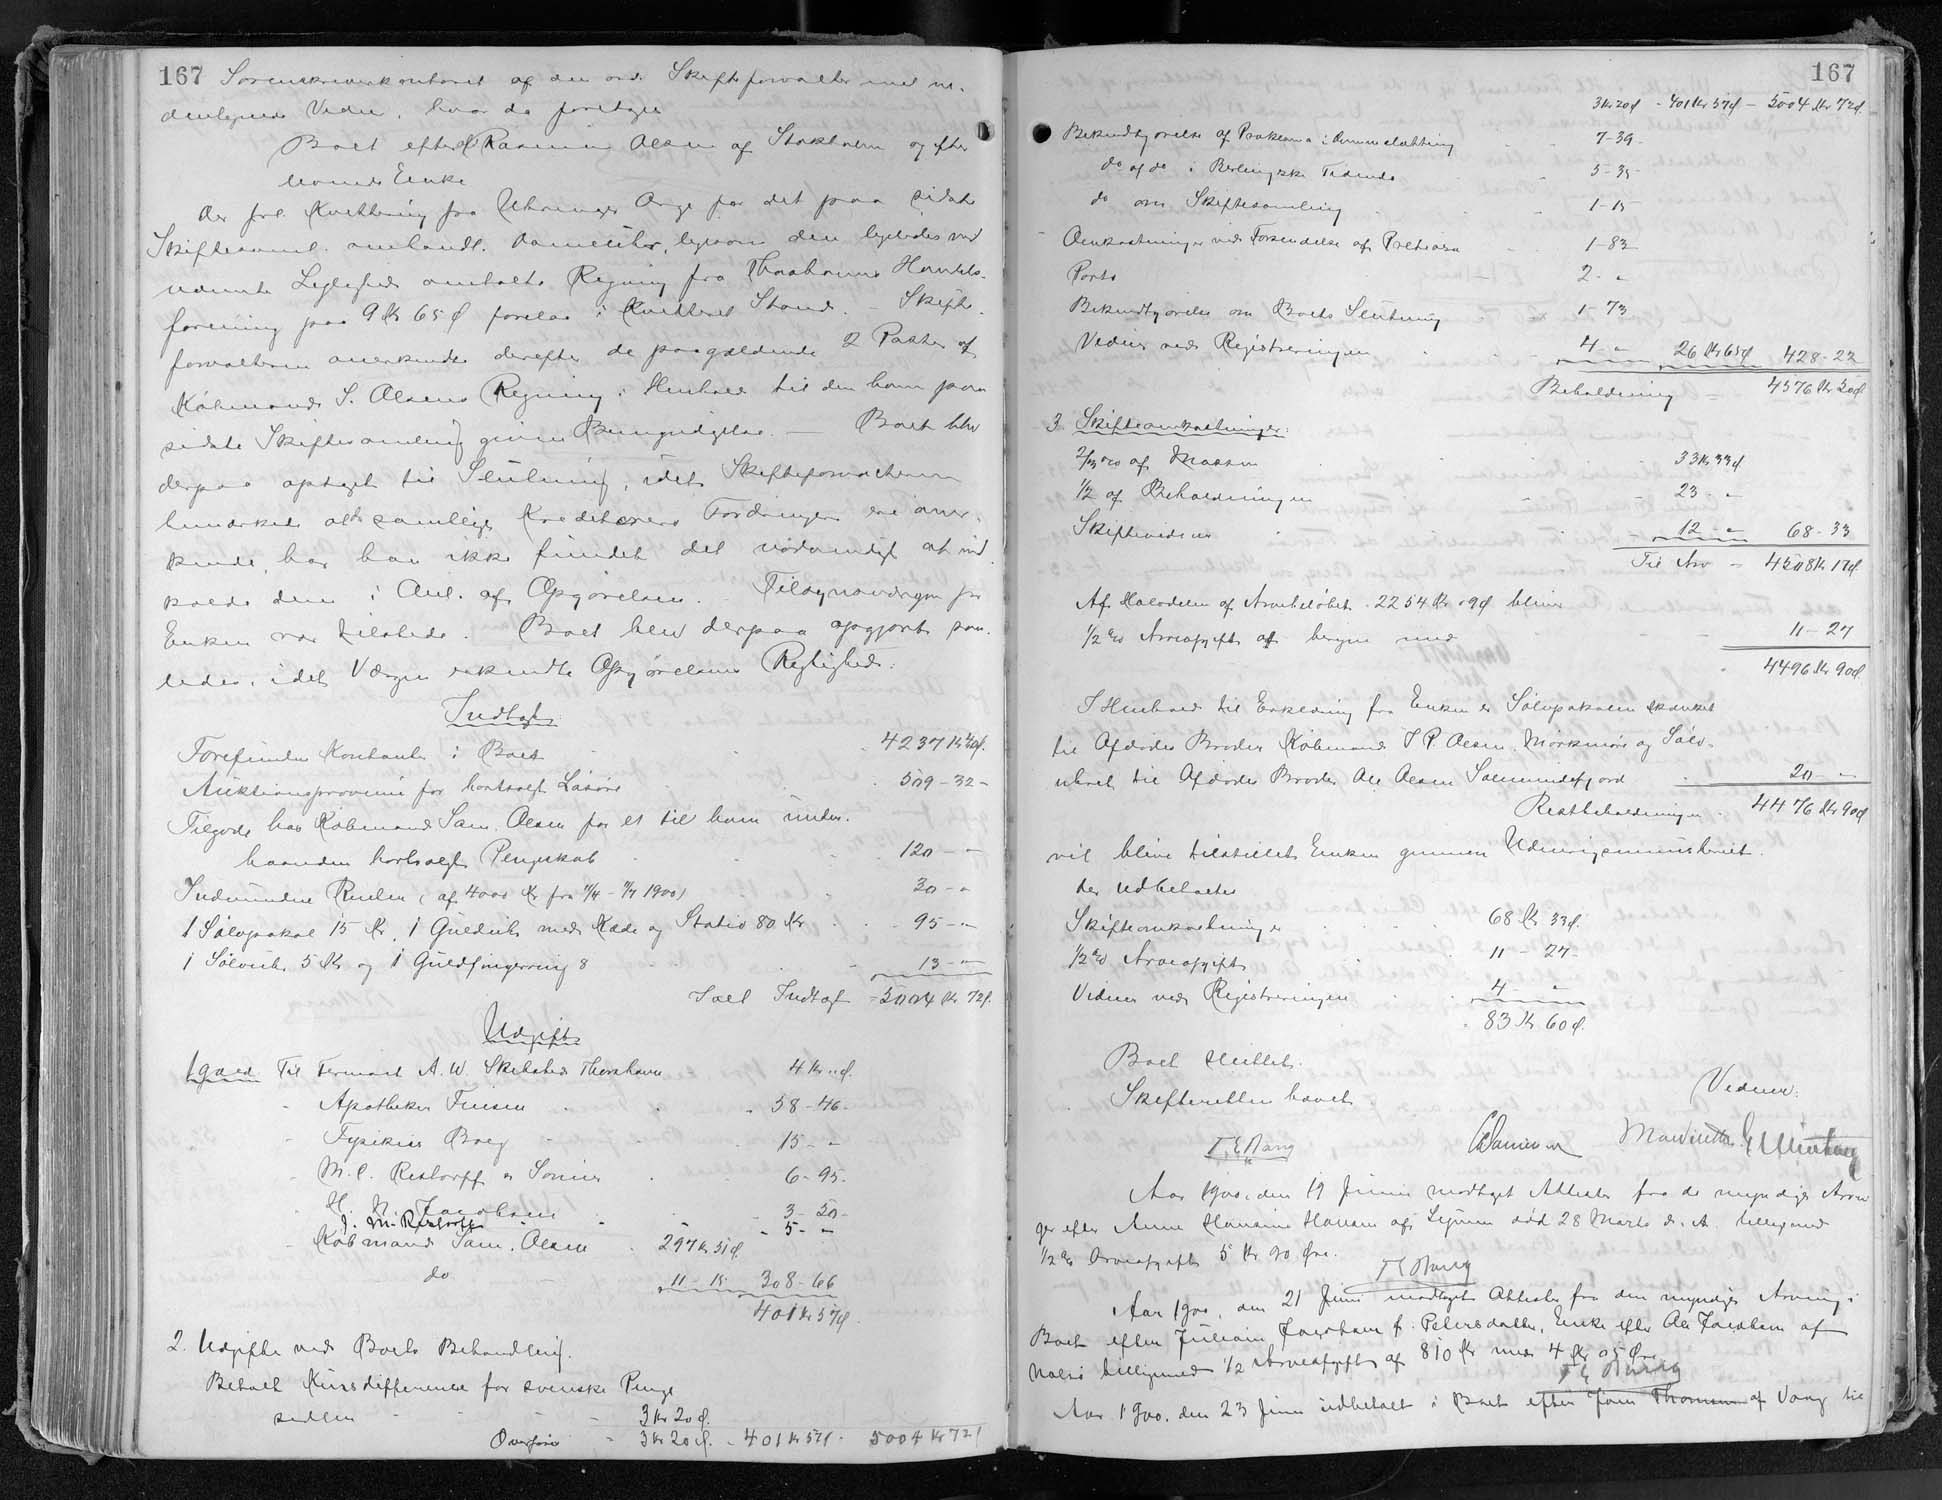 167 Sorenskriverkontoret af den ord. Skifteforvalter med un-
dertegnede Vidner, hvor da foretages
Boet efter Rasmus Olsen af Stakholm og efter
levende Enke
Der frl. Kvittering fra Uhrmager Arge for det paa sidste
Skiftesaml. omhandl. ligesom den ligeledes ved
nævnte Leilighed omtalte Regning fra Thorshavns Handels-
forening paa 9 Kr 65 Ø forelaa i Kvitteret Stand. – Skifte-
forvalteren anerkendte derefter de paagældende 2 Poster af
Købmand S. Olsens Regning i Henhold til den ham paa
sidste Skiftesamling givne Bemyndigelse. – Boet blev
derpaa optaget til Slutning, idet Skifteforvalteren
bemærkede at da samtlige Kreditorers Fordringer ere aner-
kendte, har han ikke fundet det nødvendigt at ind-
kalde dem i Anl. af Opgørelsen. Tilsynsværgen for
Enken var tilstede. Boet blev derpaa opgjort saa-
ledes, idet Værgen erkendte Opgørelsens Rigtighed:
Indtægt:
Forefunden Kontant i Boet 4237 Kr 40 Ø.
Auktionsprovenu for bortsolgt Løsøre 509-32-
Tilgode hos Købmand Sam. Olsen for et til ham under-
haanden bortsolgt Pengeskab 120 - "
Indvundne Renter (af 4000 Kr fra 11/4 - 11/7 1900) 30 - "
1 Sølvpokal 15 Kr, 1 Guldur med Kæde og Stativ 80 Kr 95 - "
1 Sølvur 5 Kr og 1 Guldfingerring 8 13 - "
Ialt Indtægt - 5004 Kr 72 Ø.
Udgift
1 Gæld Til Fermand A. W. Thorshavn 4 Kr " Ø.
- Apotheker Finsen 58-46-
- Fysikus Boeg 15 - "
- M. C. Restorff & Sønner 6-95-
- H. N. Jacobsen 3-50-
- J. M. Restorff - 5 - "
- Købmand Sam. Olsen 297 Kr 51 Ø.
- do 11-15 308-66
401 Kr 57 Ø.
2. Udgifter ved Boets Behandling.
Betalt Kursdifference for svenske Penge
sedler 3 Kr 20 Ø.
Overføres - 3 Kr 20 Ø. - 401 Kr 57 Ø. 5004 Kr 72 Ø
167
3 Kr 20 Ø - 401 Kr 57 Ø - 5004 Kr 72 Ø.
Bekendtgørelse af Proklama i Dimmalætting 7-39-
do af do i Berlingske Tidende 5-35-
do om Skiftesamling 1-15
Omkostninger ved Forsendelse af Pretiosa 1-83
Porto 2 - "
Bekendtgørelse om Boets Slutning 1-73
Vidner ved Registreringen 4 - " 26 Kr 65 Ø 428-22
Beholdning - 4576 Kr 50 Ø.
3. Skifteomkostninger:
2/3 % af Massen 33 Kr 33 Ø
1/2 af Beholdningen 23 - "
Skiftevidner 12 - " 68-33
Til Arv - 4508 Kr 17 Ø.
Af Halvdelen af Arvebeløbet 2254 Kr 09 Ø bliver
1/2 % Arveafgift at beregne med 11-27
4496 Kr 90 Ø.
I Henhold til Erklæring fra Enken er Sølvpokalen skænket
til Afdødes Broder Købmand J. P. Olsen og Sølv-
uhret til Afdødes Broder Ole Olsen Saxmindefjord 20 - "
Restbeholdningen 4476 Kr 90 Ø
vil blive tilstillet Enken gennem
der udbetaltes
Skifteomkostninger 68 Kr 33 Ø.
1/2 % Arveafgift 11 - 27
Vidner ved Registreringen 4 - "
83 Kr 60 Ø.
Boet sluttet.
Skifteretten hævet
Vidner:
Aar 1900, den 19 Juni modtaget Attester fra de myndige Arvin
ger efter Anne Hansine Hansen af død 28 Marts d. A. tilligemed
1/2 % Arveafgift 5 Kr 90 Øre.
Aar 1900, den 21 Juni modtaget Attester fra den myndige Arving i
Boet efter Juliane Jacobsen f. Petersdatter, Enke efter Ole Jacobsen af
Nolsø tilligemed 1/2 Arveafgift af 810 Kr med 4 Kr 05 Øre
Aar 1900, den 23 Juni udbetalt i Boet efter Joen Thomsen af Vaag til